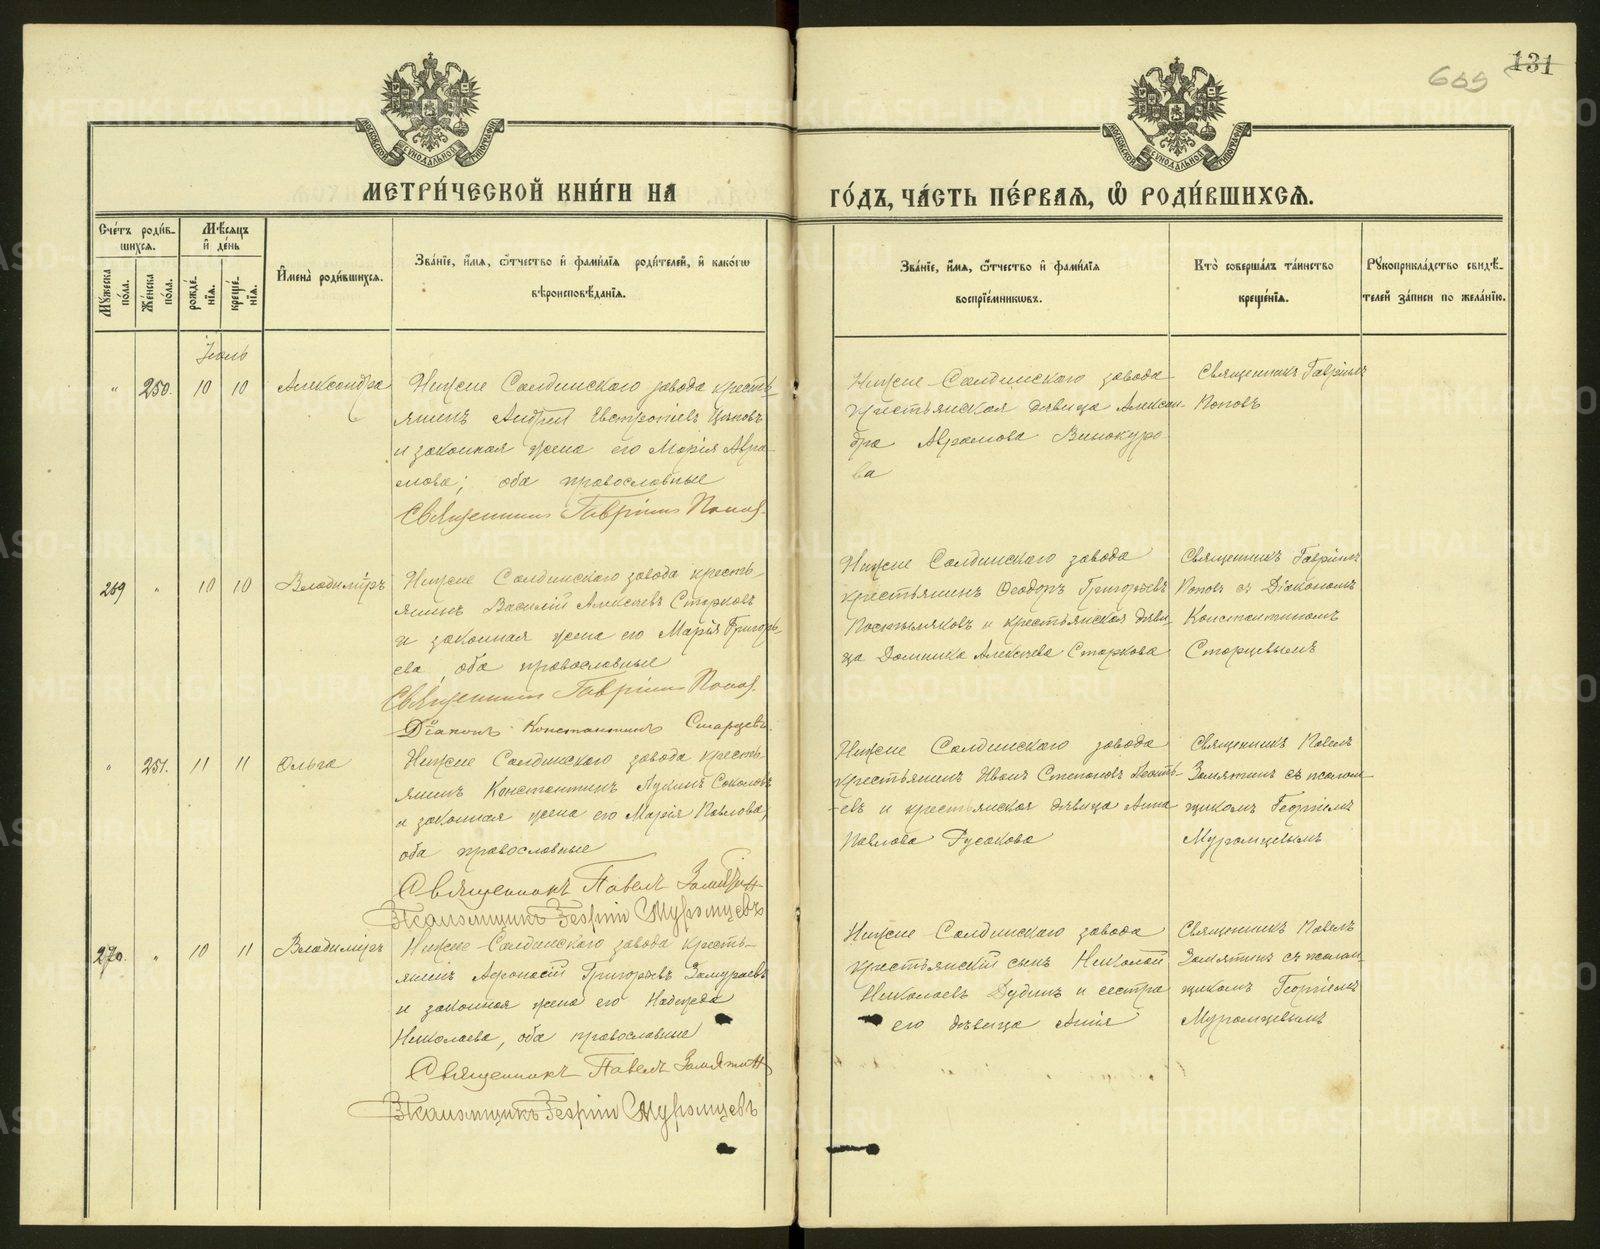 131
609
МОСКОВСКОЙ СѴНОДАЛЬНОЙ ТИПОГРАФІИ
МОСКОВСКОЙ СѴНОДАЛЬНОЙ ТИПОГРАФІИ
МЕТРИ́ЧЕСКОЙ КНИ́ГИ НА
ГО́ДЪ, ЧА́СТЬ ПЕ́РВАѦ, Ѡ РОДИ́ВШИХСѦ.
Сче́тъ роди́в-
шихся.
Мѣ́сяцъ
и҆ де́нь
Мꙋ́жеска по́ла.
Же́нска по́ла.
рожде́-нїя.
креще́-нїя.
И҆мена̀ роди́вшихся.
Зва́нїе, и҆́мя, ѻ҆́тчество и҆ фами́лїя роди́телей, и҆ како́гѡ
вѣроисповѣ́данїя.
Зва́нїе, и҆́мя, ѻ҆́тчество и҆ фами́лїя
воспрїе́мникѡвъ.
Кто̀ соверша́лъ та́инство
креще́нїя.
Рꙋкоприкла́дство свидѣ́-
телей за́писи по жела́нїю.
Іюль
" 250. 10 10 Александра
Нижне Салдинскаго завода кресть-
янинъ Андрей Евстропіевъ
и законная жена его Марія Авра-
мова; оба православные
Священникъ Гавріилъ Попов
Нижне-Салдинскаго завода
крестьянская дѣвица Алексан-
дра Аврамова Винокуро-
ва
Священникъ Гавріилъ
Поповъ
269 " 10 10 Владиміръ
Нижне Салдинскаго завода кресть-
янинъ Василій Алексѣевъ Старковъ
и законная жена его Марія Григорь-
ева оба православные
Священникъ Гавріилъ Попов.
Діаконъ Константинъ Старцевъ.
Нижне Салдинскаго завода
крестьянинъ Ѳеодоръ Григорьевъ
и крестьянская дѣви-
ца Домника Алексѣева Старкова
Священникъ Гавріилъ
Поповъ съ Діакономъ
Константиномъ
Старцевымъ
" 251. 11 11 Ольга
Нижне Салдинскаго завода кресть-
янинъ Константинъ Лукинъ Соколовъ
и законная жена его Марія Павлова,
оба православные
Священникъ Павелъ Замятин
Псаломщикъ Георгій Муромцевъ
Нижне Салдинскаго завода
крестьянинъ Иванъ Степановъ
и крестьянская дѣвица Анна
Павлова Русакова
Священникъ Павелъ
Замятинъ съ псалом-
щикомъ Георгіемъ
Муромцевымъ
270. " 10 11 Владиміръ
Нижне-Салдинскаго завода кресть-
янинъ Афонасій Григорьевъ Замураевъ
и законная жена его Надежда
Николаева, оба православные
Священникъ Павелъ Замятин
Псаломщикъ Георгій Муромцевъ
Нижне-Салдинскаго завода
крестьянскій сынъ Николай
Николаевъ Дудинъ и сестра
его дѣвица
Священникъ Павелъ
Замятинъ съ псалом-
щикомъ Георгіемъ
Муромцевымъ
METRIKI.GASO-URAL.RU